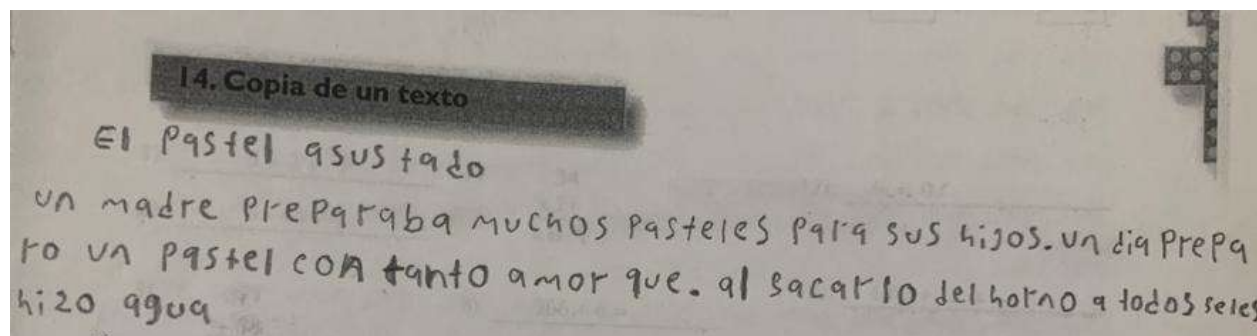 14. Copia de un texto
El Pastel asustado
un madre preparaba muchos pasteles para sus hijos. un dia prepa
ro un pastel con tanto amor que. al sacarlo del horno a todos seles
hizo agua